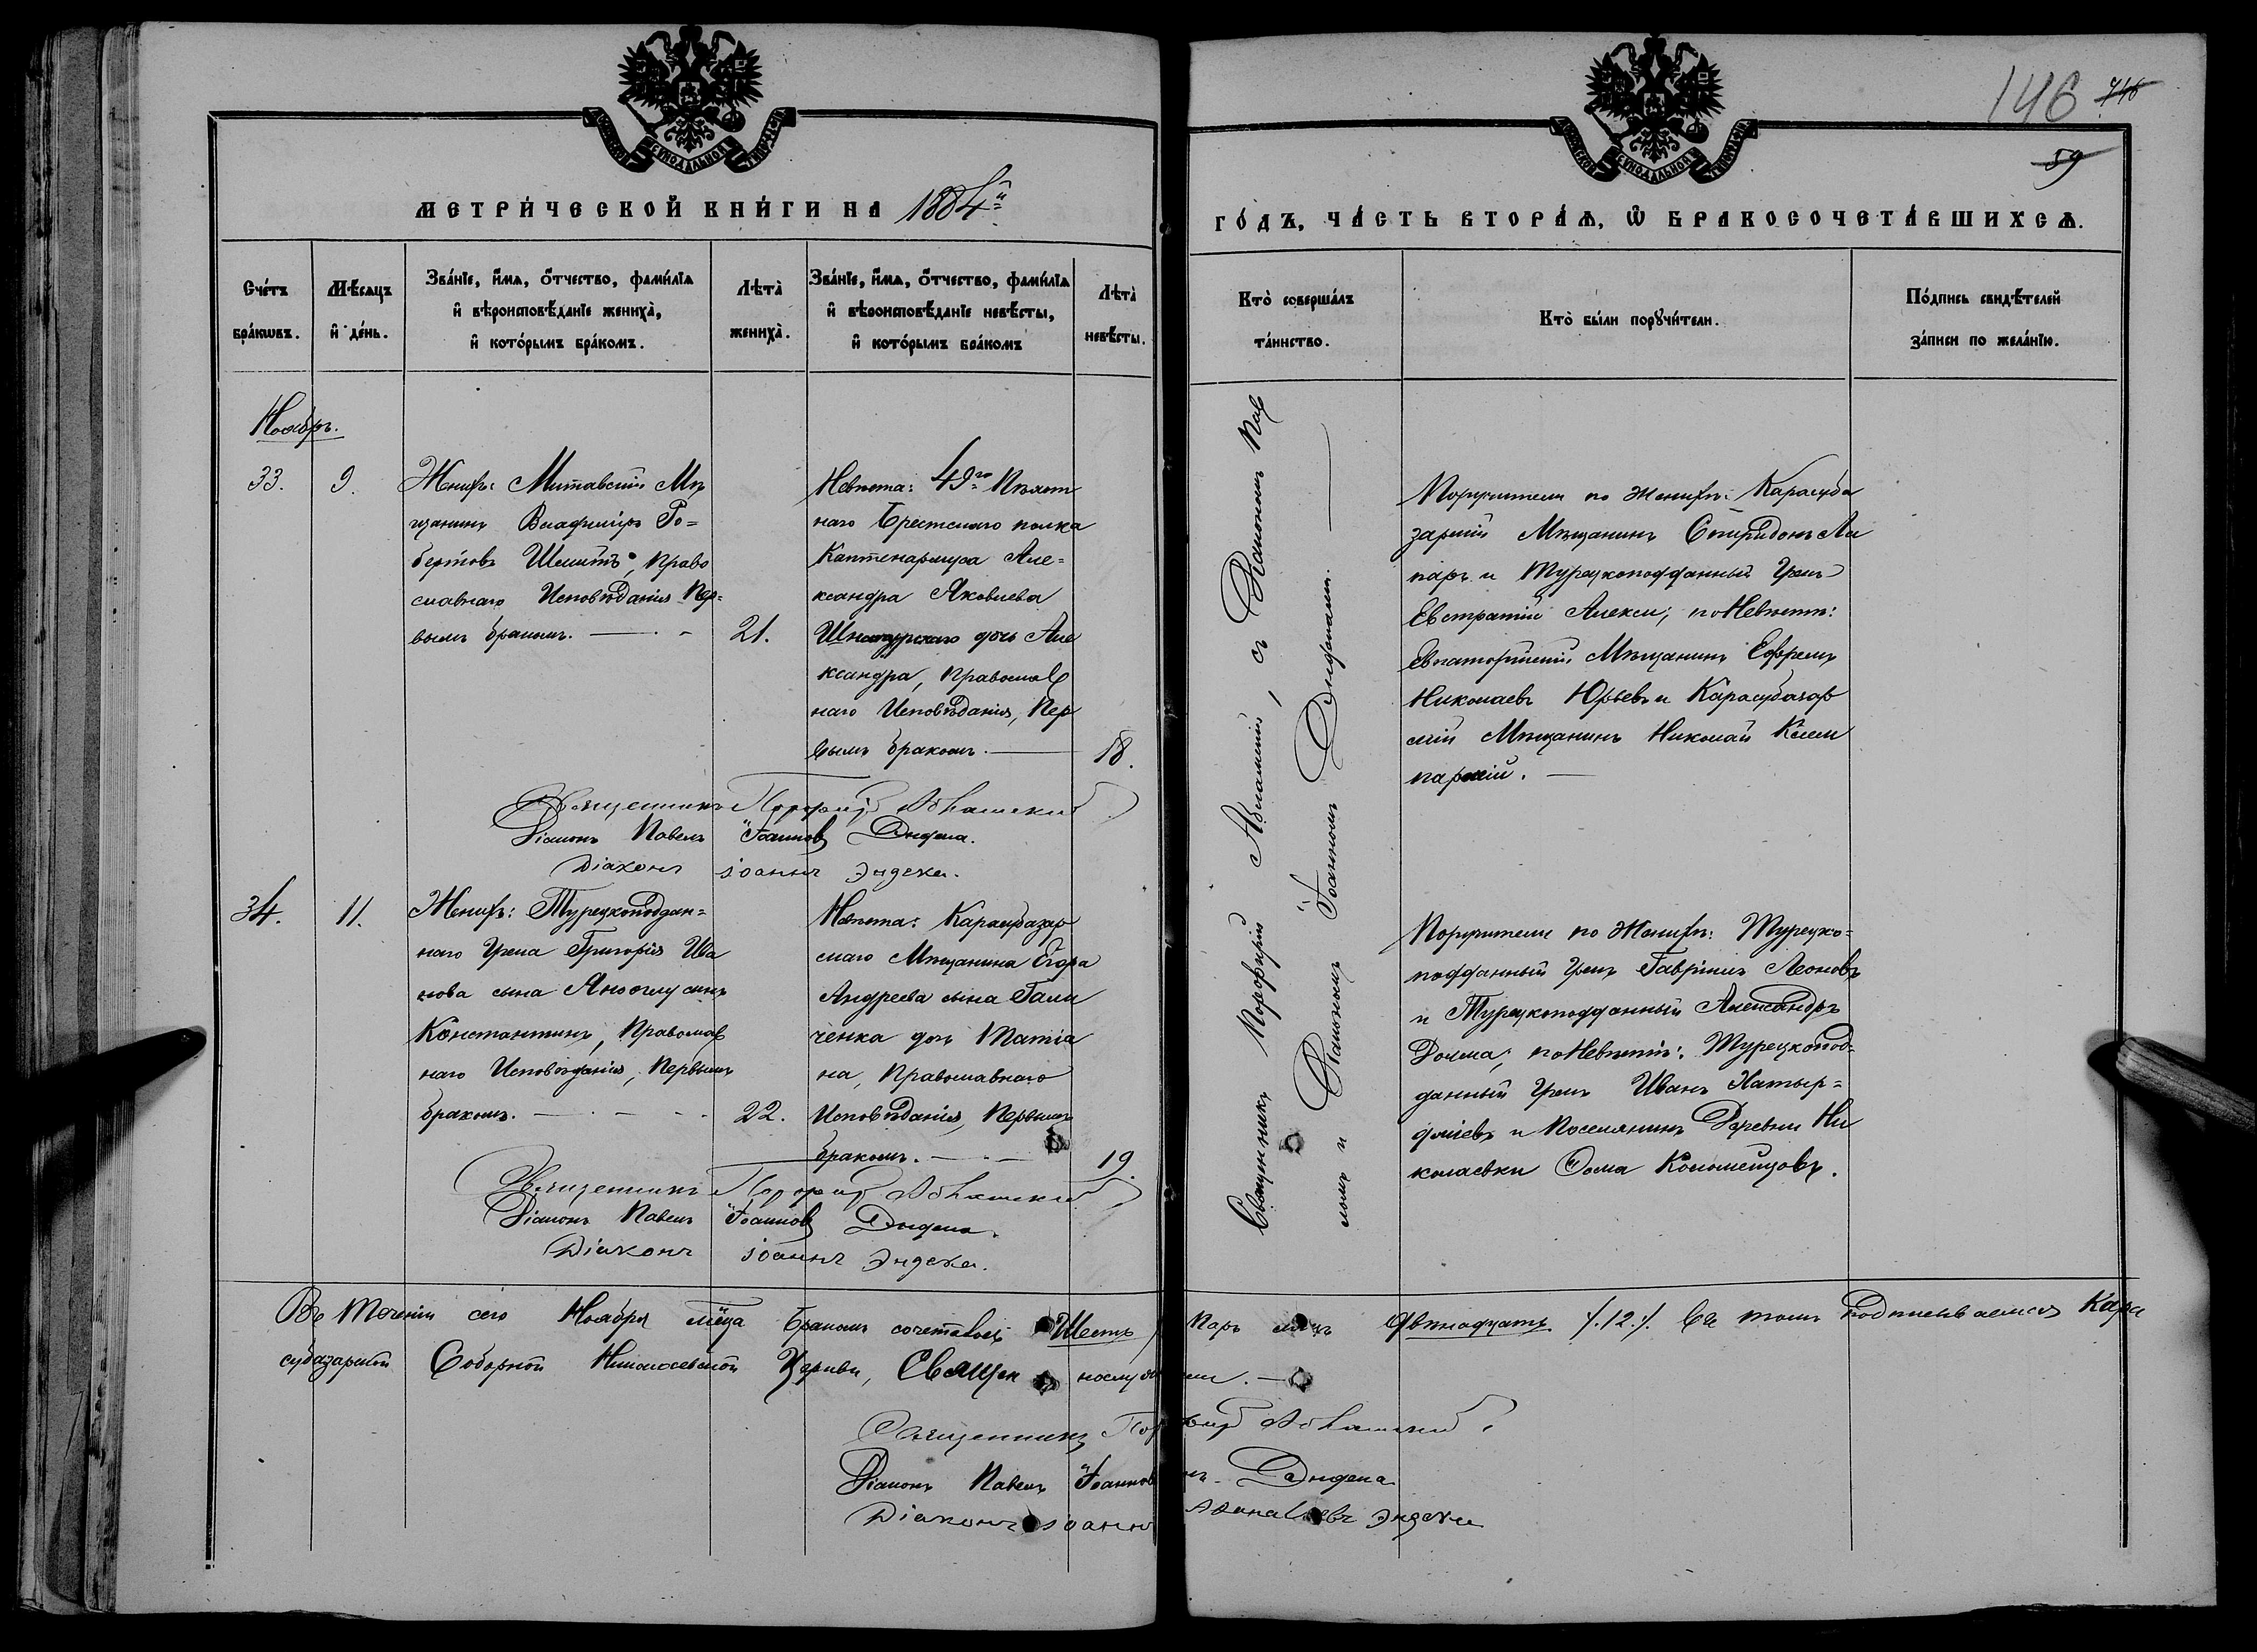 146 746
59
МОСКОВСКОЙ СѴНОДАЛЬНОЙ ТИПОГРАФІИ
МОСКОВСКОЙ СѴНОДАЛЬНОЙ ТИПОГРАФІИ
МЕТРИ́ЧЕСКОЙ КНИ́ГИ НА 1884й
ГО́ДЪ, ЧА́СТЬ ВТОРА́Ѧ, Ѽ БРАКОСОЧЕТА́ВШИХСѦ.
Счетъ бра́кѡвъ.
Мѣсѧцъ и҆ де́нь.
Зва́нїе, и҆́мѧ, ѻ҆́тчество, фами́лїа
и҆ вѣроисповѣ́данїе жениха̀,
и҆ кото́рымъ бра́комъ.
Лѣта̀ жениха̀.
Зва́нїе, и҆́мѧ, ѻ҆́тчество, фами́лїа
и҆ вѣроисповѣ́данїе невѣ́сты,
и҆ кото́рымъ бра́комъ
Лѣта̀ невѣ́сты.
Кто̀ соверша́лъ та́инство.
Кто̀ бы́ли порꙋчи́тели.
По́дпись свидѣ́телей за́писи по жела́нїю.
Ноябрь.
33. 9.
Женихъ: Митавскій Мѣ
щанинъ Владиміръ Ро=
бертовъ Шмитъ, Право
славнаго Исповѣданія Пер=
вымъ бракомъ. — 21.
Невѣста: 49го Пѣхот
наго Брестскаго полка
Каптенармуса Але=
ксандра Яковлева
дочь Але
ксандра, Православ
наго Исповѣданія, Пер
вымъ бракомъ. — 18.
Священникъ Порфирій Абламскій, съ Діакономъ Пав
ломъ и Діакономъ Іоанномъ Эндеками. —
Поручители по Женихѣ: Карасуба
зарскій Мѣщанинъ Спиридонъ Ли
паръ и Турецкоподданный Грекъ
Евстратій Алекси; по Невѣстѣ:
Евпаторійскій Мѣщанинъ Ефремъ
Николаевъ Юрьевъ и Карасубазар
скій Мѣщанинъ Николай Кали
парскій. —
Священникъ Порфирій Абламскій
Діаконъ Павелъ Іоанновъ Эндека.
Діаконъ Іоаннъ Эндека.
34. 11.
Женихъ: Турецкоподдан=
наго Грека Григорія Ива
нова сына Яноглу сынъ
Константинъ, Православ
наго Исповѣданія, Первымъ
бракомъ. — 22.
Невѣста: Карасубазар
скаго Мѣщанина Егора
Андреева сына Гали
ченка дочь Матіа
на, Православнаго
Исповѣданія, Первымъ
бракомъ. — 19.
Поручители по Женихѣ: Турецко=
подданный Грекъ Гавріилъ Леоновъ
и Турецкоподданный Александръ
Долма; по Невѣстѣ: Турецкопод=
данный Грекъ Иванъ Хатыр=
и Поселянинъ Деревни Ни
колаевки Фома Коломейцовъ.
Священникъ Порфирій Абламскій
Діаконъ Павелъ Іоанновъ Эндека.
Діаконъ Іоаннъ Эндека.
Въ теченіи сего Ноября мѣсца бракомъ сочеталось Шесть паръ лицъ Двѣнадцать /.12./. Въ томъ подписываемся Кара
субазарской Соборной Николаевской Церкви, Священнослужители. —
Священникъ Порфирій Абламскій
Діаконъ Павелъ Іоанновъ Эндека
Діаконъ Іоаннъ Аѳанасьевъ Эндека